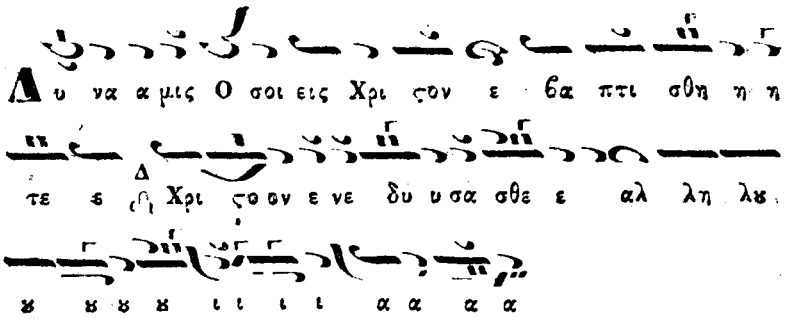 Δυ να α μις Ο σοι εις Χρι ϛον ε ϐα πτι σθη η η
τε ε Δ Χρι ϛο ον ε νε δυ υ σα σθε ε αλ λη λȣ
ȣ ȣ ȣ ȣ ι ι ι ι α α α α